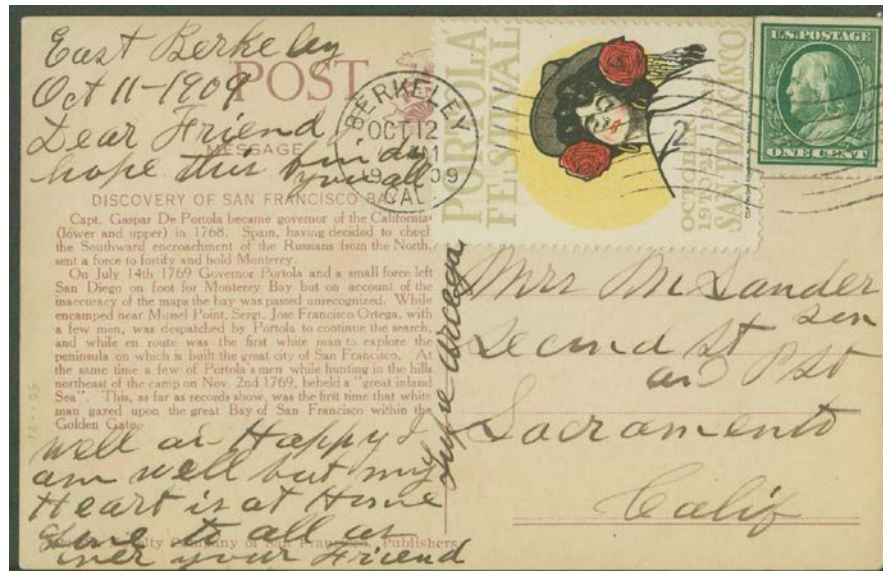 East Berkeley
Oct 11-1909
Dear Friend I
hope this finds
you all
POST
MESSAGE
DISCOVERY OF SAN FRANCISCO BAY
Capt. Gaspar De Portola became governor of the California
(lower and upper) in 1768. Spain, having decided to check
the Southward encroachment of the Russians from the North,
sent a force to fortify and hold Monterey.
On July 14th 1769 Governor Portola and a small force left
San Diego on foot for Monterey Bay but on account of the
inaccuracy of the maps the bay was passed unrecognized. While
encamped near Mussel Point, Sergt. Jose Francisco Ortega, with
a few men, was despatched by Portola to continue the search,
and while en route was the first white man to explore the
peninsula on which is built the great city of San Francisco. At
the same time a few of Portola's men while hunting in the hills
northeast of the camp on Nov. 2nd 1769, beheld a "great inland
Sea". This, as far as records show, was the first time that white
man gazed upon the great Bay of San Francisco within the
Golden Gate.
well an Happy I
am well but my
Heart is at Home
Love to all as
ever your Friend
Company of San Francisco, Publishers
BERKELEY
OCT 12
1909
CAL
PORTOLA
FESTIVAL
OCTOBER
19 TO 23
SAN FRANCISCO
2
U.S. POSTAGE
ONE CENT
Mrs M Sander
Second St
and P St
Sacramento
Calif